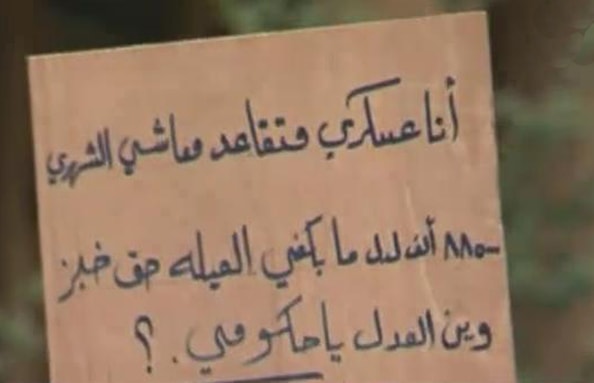 أنا عسكري متقاعد معاشي الشهري
ألف ما يكفي العيله حق خبز
وين العدل يا حكومتي . ؟